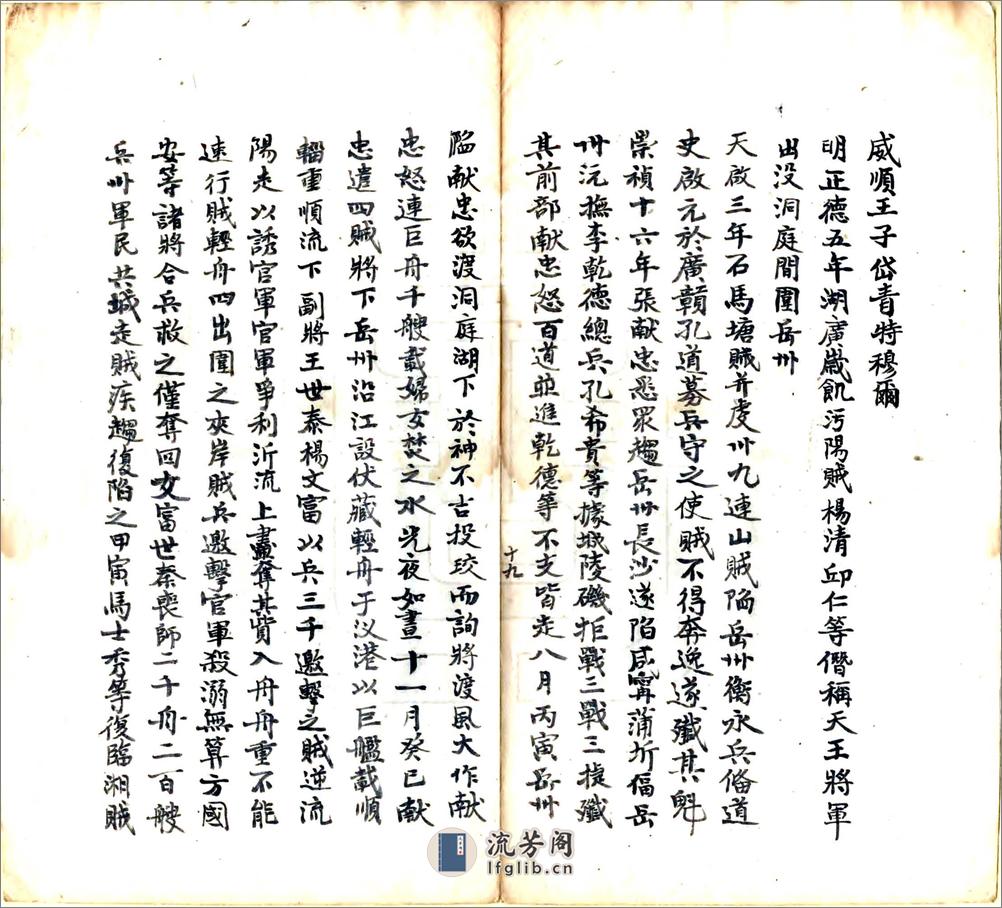 威順王子岱青特穆爾
明正德五年湖廣歲飢沔陽賊楊清邱仁等僭稱天王將軍
出没洞庭間圍岳州
天啟三年石馬塘賊并虔州九連山賊陷岳州衡永兵俻道
史啟元於廣贛孔道募兵守之使賊不得奔逸遂殲其魁
崇禎十六年張献忠悉眾趨岳州長沙遂陷咸寧蒲圻偪岳
州沅撫李乾德總兵孔希貴等據城陵磯拒戰三戰三捷殲
其前部献忠怒百道並進乾德等不支皆走八月丙寅岳州
十九
陷献忠欲渡洞庭湖卜於神不吉投珓而詢將渡風大作献
忠怒連巨舟千艘載婦女焚之水光夜如晝十一月癸巳献
忠遣四賊將下岳州沿江設伏藏輕舟于汊港以巨艦載順
輜重順流下副將王世泰楊文富以兵三千邀擊之賊逆流
陽走以誘官軍官軍爭利泝流上盡奪其貲入舟舟重不能
速行賊輕舟四出圍之夾岸賊兵邀擊官軍殺溺無算方國
安等諸將合兵救之僅奪回文富世泰喪師二千舟二百艘
兵州軍民共城走賊疾趨復陷之甲寅馬士秀等復臨湘賊
流芳阁
lfglib.cn